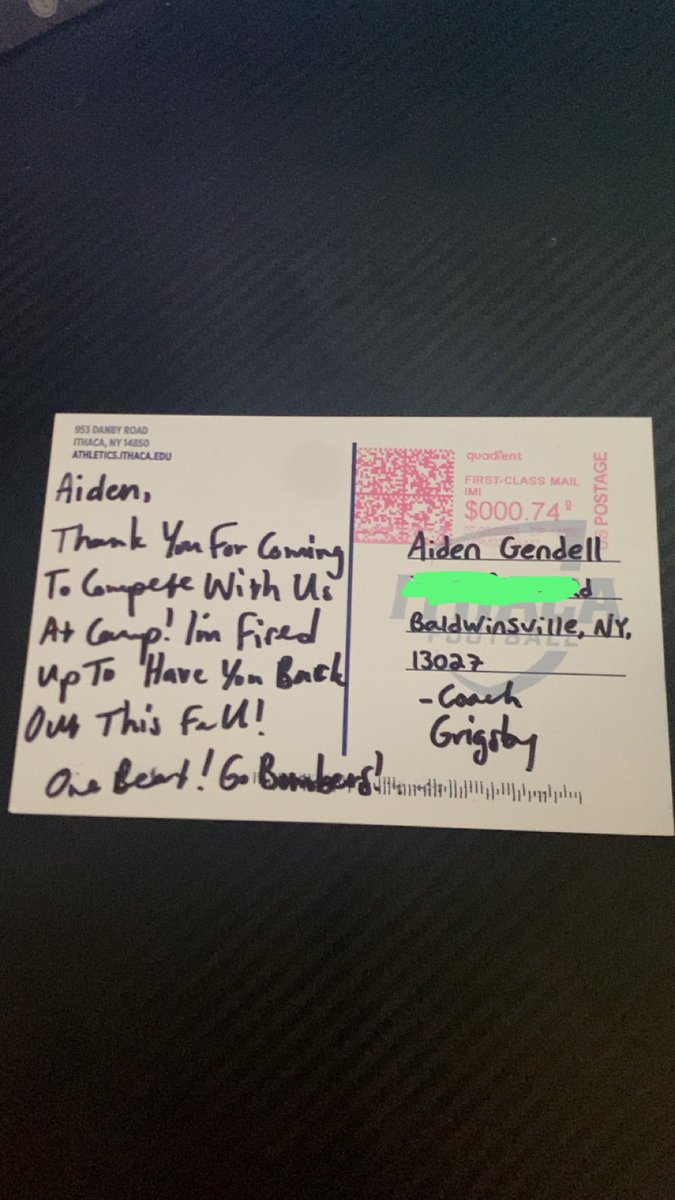 953 DANBY ROAD
ITHACA, NY 14850
ATHLETICS.ITHACA.EDU
Aiden,
Thank You For Coming
To Compete With Us
At Camp! I'm Fired
Up To Have You Back
Out This Fall!
One Beat! Go Bombers!
quadient
FIRST-CLASS MAIL
IMI
$000.74⁰
US POSTAGE
Aiden Gendell
Rd
ITHACA
FOOTBALL
Baldwinsville, NY,
13027
-Coach
Grigsby